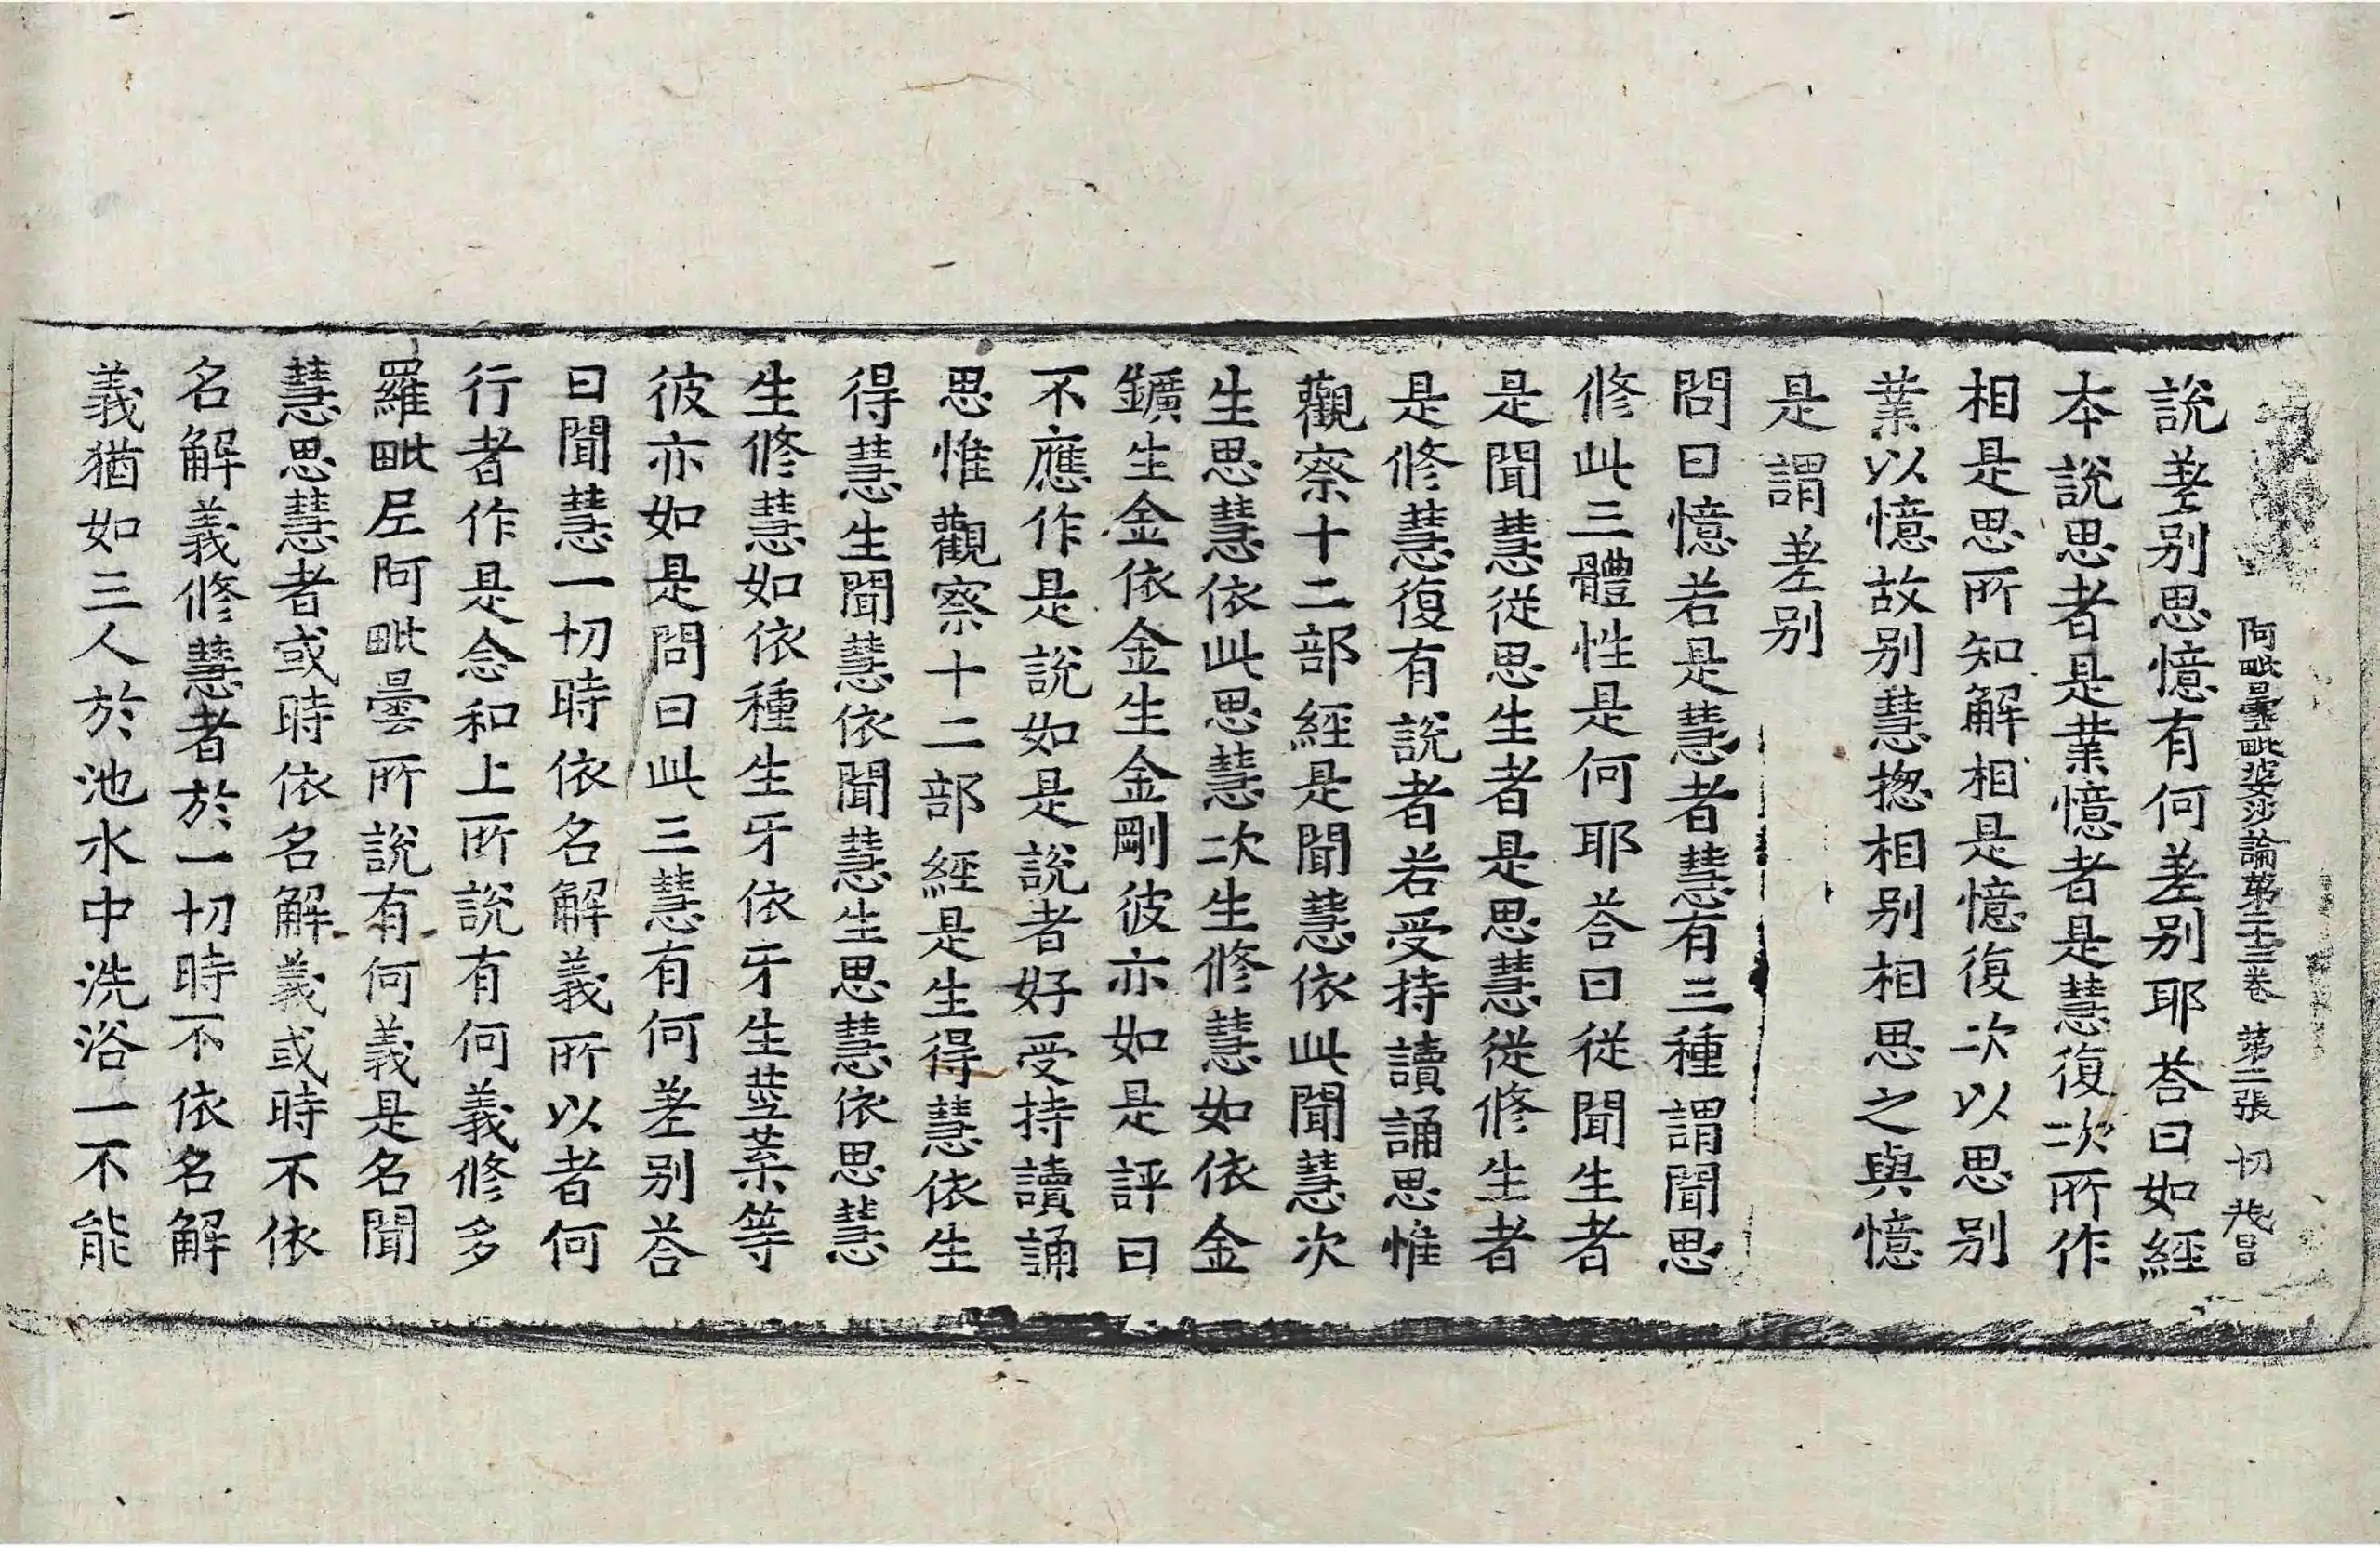 阿毗曇毗婆沙論第二十三卷 第二張 切
說差別思憶有何差別耶荅曰如經
本說思者是業憶者是慧復次所作
相是思所知解相是憶復次以思別
業以憶故別慧揔相別相思之與憶
是謂差別
問曰憶若是慧者慧有三種謂聞思
修此三體性是何耶荅曰從聞生者
是聞慧從思生者是思慧從修生者
是修慧復有說者若受持讀誦思惟
觀察十二部經是聞慧依此聞慧次
生思慧依此思慧次生修慧如依金
鑛生金依金生金剛彼亦如是評曰
不應作是說如是說者好受持讀誦
思惟觀察十二部經是生得慧依生
得慧生聞慧依聞慧生思慧依思慧
生修慧如依種生牙依牙生莖葉等
彼亦如是問曰此三慧有何差別荅
曰聞慧一切時依名解義所以者何
行者作是念和上所說有何義修多
羅毗尼阿毗曇所說有何義是名聞
慧思慧者或時依名解義或時不依
名解義修慧者於一切時不依名解
義猶如三人於池水中洗浴一不能